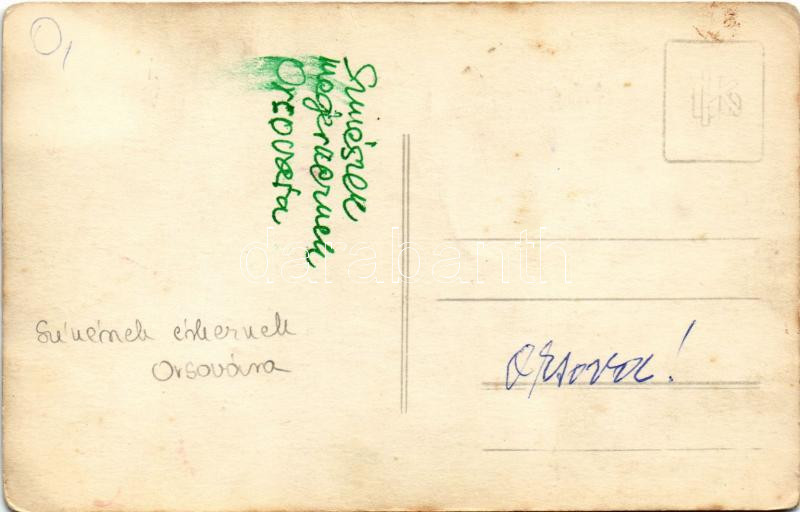 O,
Színészek
megérkeznek
Orsovára
Színészek érkeznek
Orsovára
Orsova!
darabanth